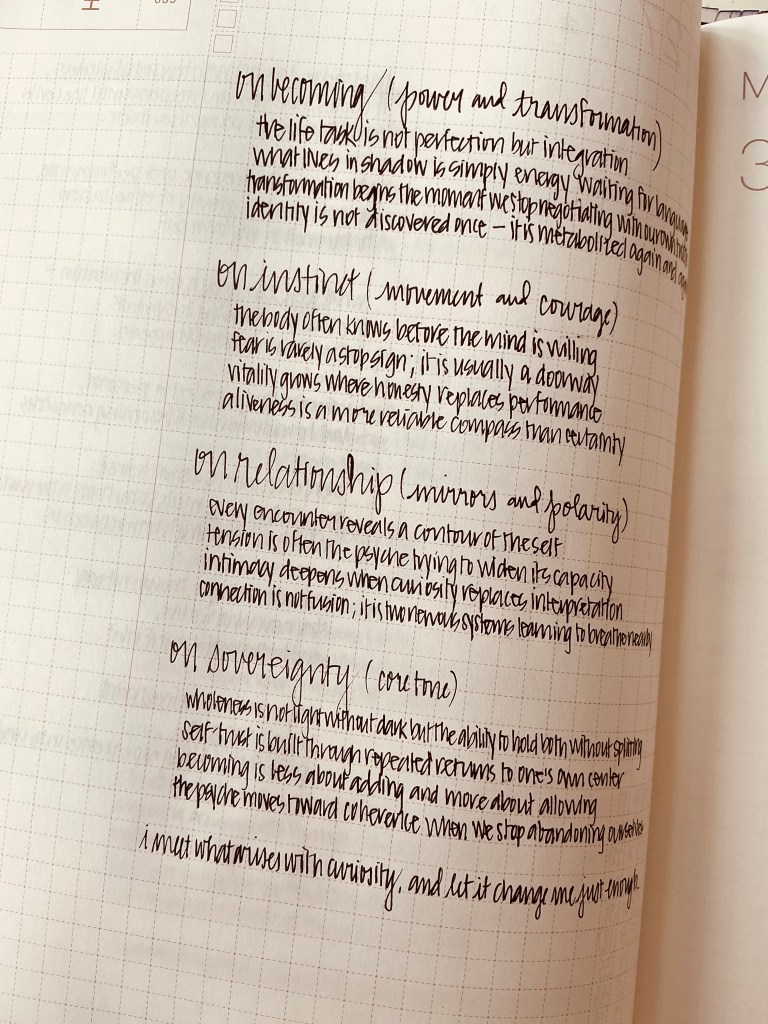 on becoming (power and transformation)
the life task is not perfection but integration
what lives in shadow is simply energy waiting for language
transformation begins the moment we stop negotiating with our own truth
identity is not discovered once – it is metabolized again and again
on instinct (movement and courage)
the body often knows before the mind is willing
fear is rarely a stop sign; it is usually a doorway
vitality grows where honesty replaces performance
aliveness is a more reliable compass than certainty
on relationship (mirrors and polarity)
every encounter reveals a contour of the self
tension is often the psyche trying to widen its capacity
intimacy deepens when curiosity replaces interpretation
connection is not fusion; it is two nervous systems learning to breathe nearby
on sovereignty (core tone)
wholeness is not light without dark but the ability to hold both without splitting
self-trust is built through repeated returns to one's own center
becoming is less about adding and more about allowing
the psyche moves toward coherence when we stop abandoning ourselves
i meet what arises with curiosity, and let it change me just enough.
M
3